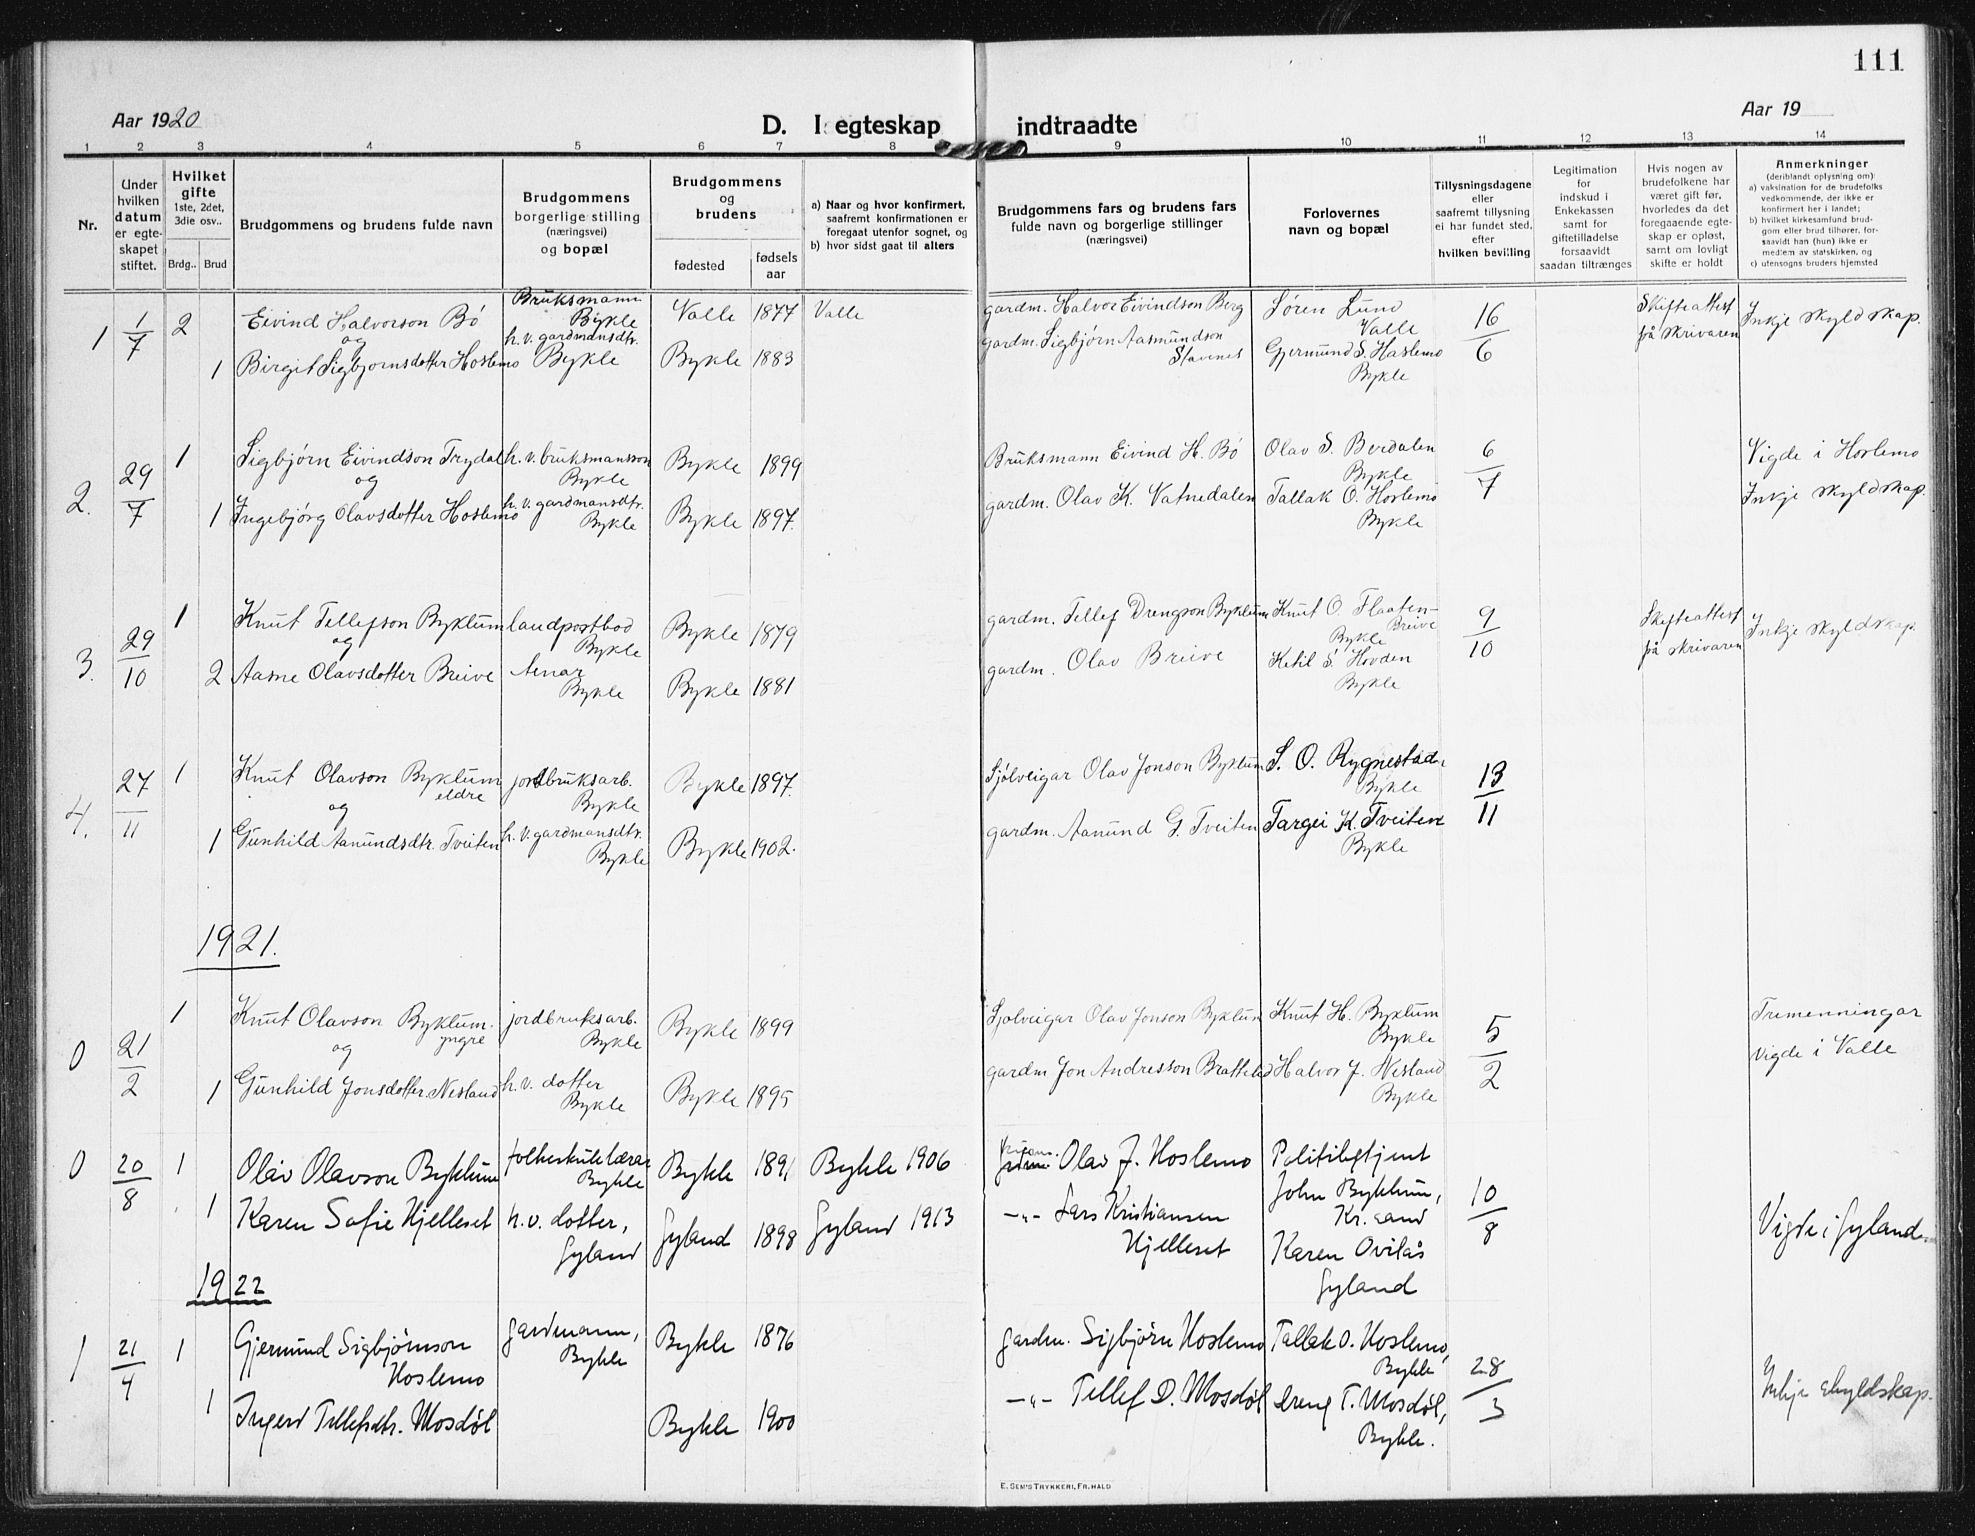 111
Aar 1920
D. I egteskap indtraadte
Aar 19
1 2 3 4 5 6 7 8 9 10 11 12 13 14
Nr.
Under hvilken datum er egteskapet stiftet.
Hvilket gifte
1ste, 2det, 3die osv..
Brdg.. Brud
Brudgommens og brudens fulde navn
Brudgommens borgerlige stilling (næringsvei) og bopæl
Brudgommens og brudens
fødested
fødsels aar
a) Naar og hvor konfirmert, saafremt konfirmationen er foregaat utenfor sognet, og
b) hvor sidst gaat til alters
Brudgommens fars og brudens fars fulde navn og borgerlige stillinger (næringsvei)
Forlovernes navn og bopæl
Tillysningsdagene eller saafremt tillysning ei har fundet sted, efter hvilken bevilling
Legitimation for indskud i Enkekassen samt for giftetilladelse forsaavidt saadan tiltrænges
Hvis nogen av brudefolkene har været gift før, hvorledes da det foregaaende egteskap er opløst, samt om lovligt skifte er holdt
Anmerkninger
(deriblandt oplysning om):
a) vaksination for de brudefolks vedkommende, der ikke er konfirmert her i landet;
b) hvilket kirkesamfund brudgom eller brud tilhører, forsaavidt han (hun) ikke er medlem av statskirken, og
c) utensogns bruders hjemsted
1 1/7 2 Eivind Halvorson Bö Bruksmann Bykle Valle 1877 Valle gardm. Halvor Eivindson Berg Søren Lund Valle 16/6 Skifteattest frå skrivaren Inkje skyldskap.
og
1 Birgit Sigbjørnsdotter Hoslemo h. v. gardmansdtr. Bykle Bykle 1883 gardm. Sigbjørn Aasmundson Gjermund S. Hoslemo Bykle
2. 29/7 1 Sigbjörn Eivindson Trydal h. v. bruksmansson Bykle Bykle 1899 Bruksmann Eivind H. Bö Olav S. Berdalen Bykle 6/7 Vigde i Hoslemo
og
1 Ingebjörg Olavsdotter Hoslemo h. v. gardmansdtr. Bykle Bykle 1897. gardm. Olav K. Vatnedalen Tallak O. Hoslemo Bykle Inkje skyldskap.
3. 29/10 1 Knut Tellefson Byklum landpostbod Bykle Bykle 1879 gardm. Tellef Drengson Byklum Knut O. Flaaten-Breive Bykle 9/10 Skifteattest frå skrivaren Inkje skyldskap.
og
2 Aasne Olavsdotter Breive Bykle Bykle 1881 gardm. Olav Breive Ketil S. Hovden Bykle
4. 27/11 1 Knut Olavson Byklum eldre jordbruksarb. Bykle Bykle 1897. Sjölveigar Olav Jonson Byklum S. O. Rygnestad Bykle 13/11
og
1 Gunhild Aanundsdtr. Tveiten h. v. gardmansdtr. Bykle Bykle 1902. gardm. Aanund G. Tveiten Targei K. Tveiten Bykle
1921.
0 21/2 1 Knut Olavson Byklum. yngre jordbruksarb. Bykle Bykle 1899 Sjolveigar Olav Jonson Byklum Knut H. Byklum Bykle 5/2 Tremenningar
og
1 Gunhild Jonsdotter Nesland h. v. dotter Bykle Bykle 1895 gardm Jon Andresson Brattelid Halvor J. Nesland Bykle Vigde i Valle
0 20/8 1 Olav Olavson Byklum folkeskulelærar Bykle Bykle 1891 Bykle 1906 Olav J. Hoslemo Politibetjent John Byklum, Kr.sand 10/8
1 Karen Sofie Hjelleset h. v. dotter, Gyland Gyland 1898 Gyland 1913 -"- Lars Kristiansen Hjelleset Karen Ovilås Gyland Vigde i Gyland
1922
1 21/4 1 Gjermund Sigbjørnson Hoslemo gardmann, Bykle Bykle 1876 gardm. Sigbjørn Hoslemo Tallak O. Hoslemo, Bykle 28/3 Inkje skyldskap.
1 Ingerd Tellefsdtr. Mosdøl Bykle 1900 -"- Tellef D. Mosdøl Dreng T. Mosdøl, Bykle.
E. SEM'S TRYKKERI, FR.HALD